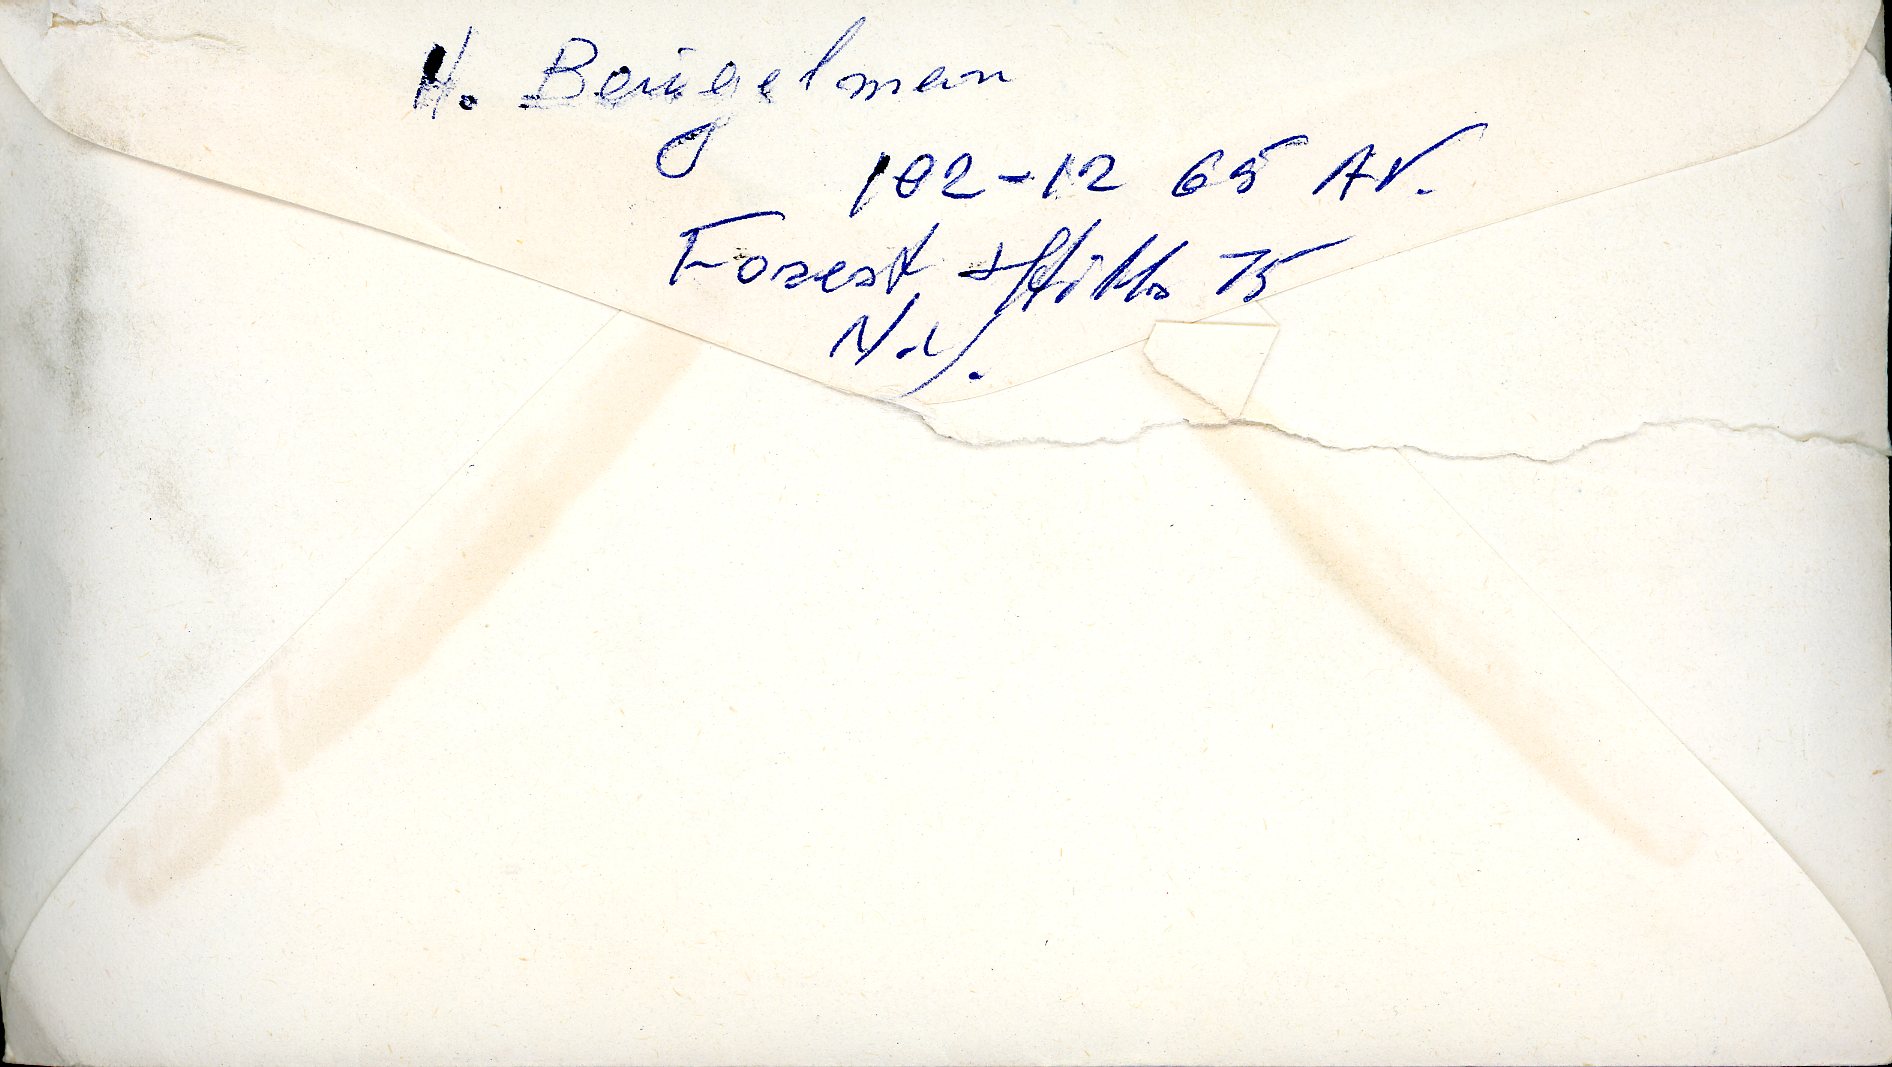 H. Beigelman
102-12 65 Av.
Forest Hills 75
N.Y.